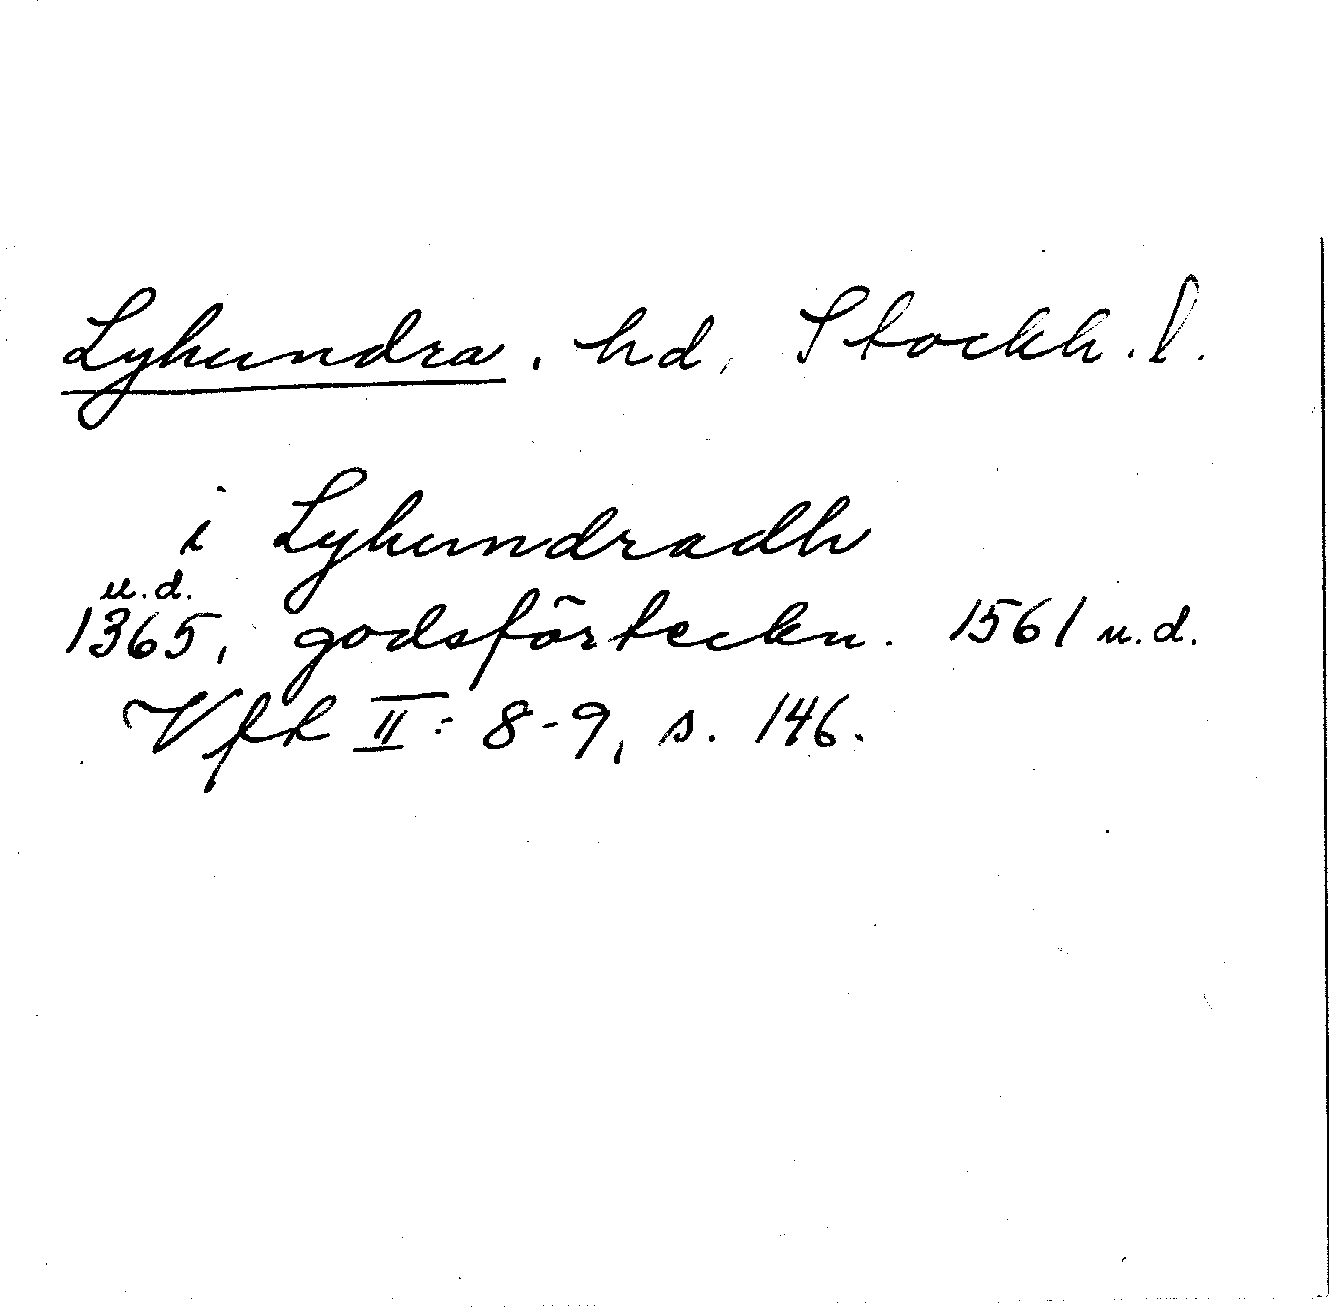 Lyhundra. hd, Stockh. l.
i Lyhundradh
u.d.
1365, godsförteckn. 1561 u.d.
Vfr II: 8-9, s. 146.